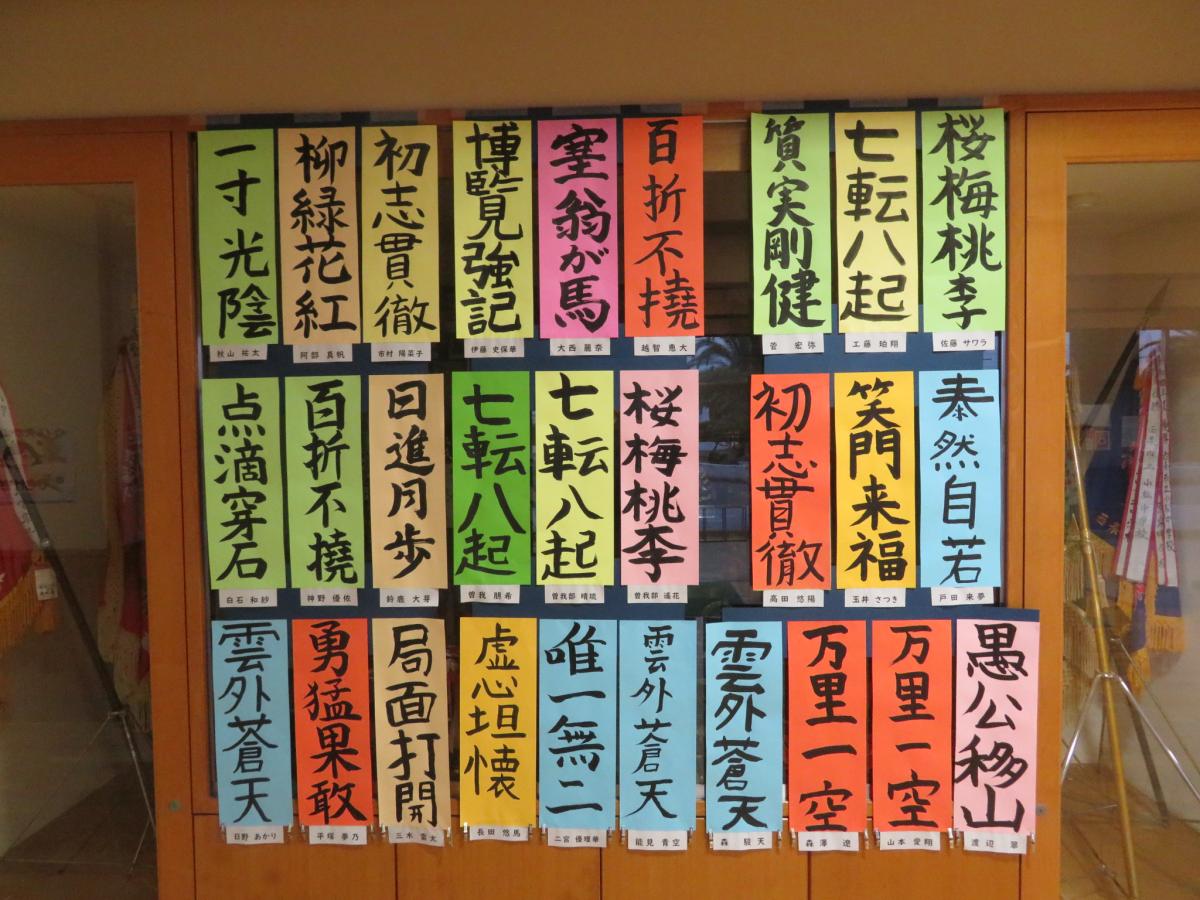 一寸光陰
秋山 祐太
柳緑花紅
阿部 真帆
初志貫徹
市村 陽菜子
博覧強記
伊藤 史保華
塞翁が馬
大西 麗奈
百折不撓
越智 恵大
質実剛健
菅 宏弥
七転八起
工藤 珀翔
桜梅桃李
佐藤 サワラ
点滴穿石
白石 和紗
百折不撓
神野 優佐
日進月歩
鈴鹿 大芽
七転八起
曽我 朋希
七転八起
曽我部 晴琉
桜梅桃李
曽我部 遥花
初志貫徹
高田 悠陽
笑門来福
玉井 さつき
泰然自若
戸田 来夢
雲外蒼天
日野 あかり
勇猛果敢
平塚 夢乃
局面打開
三木
虚心坦懐
長田 悠馬
唯一無二
二宮 優瑠華
雲外蒼天
能見 青空
雲外蒼天
森 駿天
万里一空
森澤 遼
万里一空
山本 愛翔
愚公移山
渡辺 翠